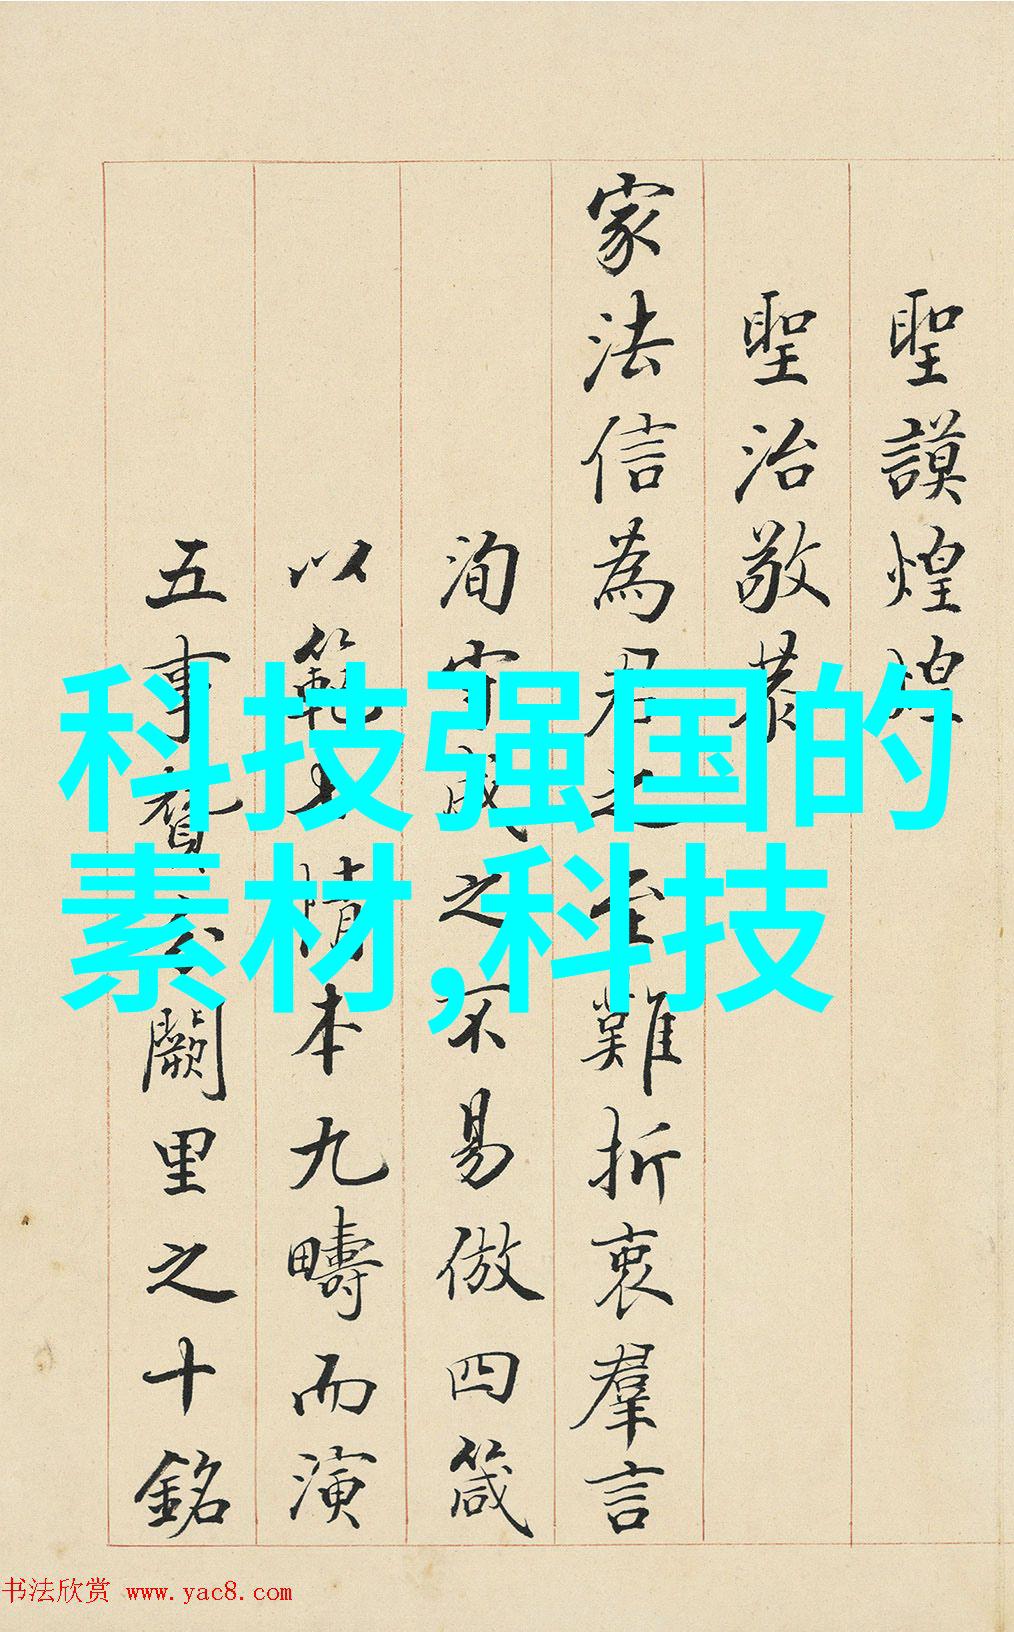 聖謨煌煌
聖治敬恭
家法信為君之至難折衷羣言
洵守成之不易倣四箴
以範情本九疇而演
五事闕里之十銘
科技强国的
素材,科技
书法欣赏 www.yac8.com